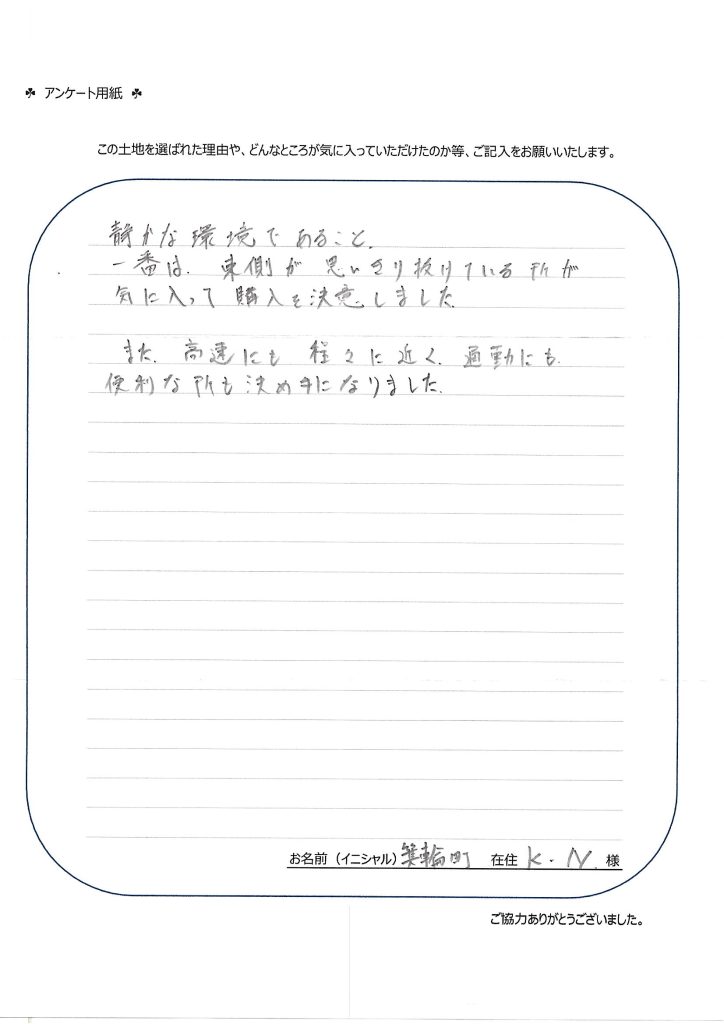 ♣ アンケート用紙 ♣
この土地を選ばれた理由や、どんなところが気に入っていただけたのか等、ご記入をお願いいたします。
静かな環境であること。
一番は、東側が思いきり抜けている所が
気に入って購入を決意しました。
また、高速にも程々に近く、通勤にも
便利な所も決め手になりました。
お名前（イニシャル）箕輪町 在住 K・N. 様
ご協力ありがとうございました。